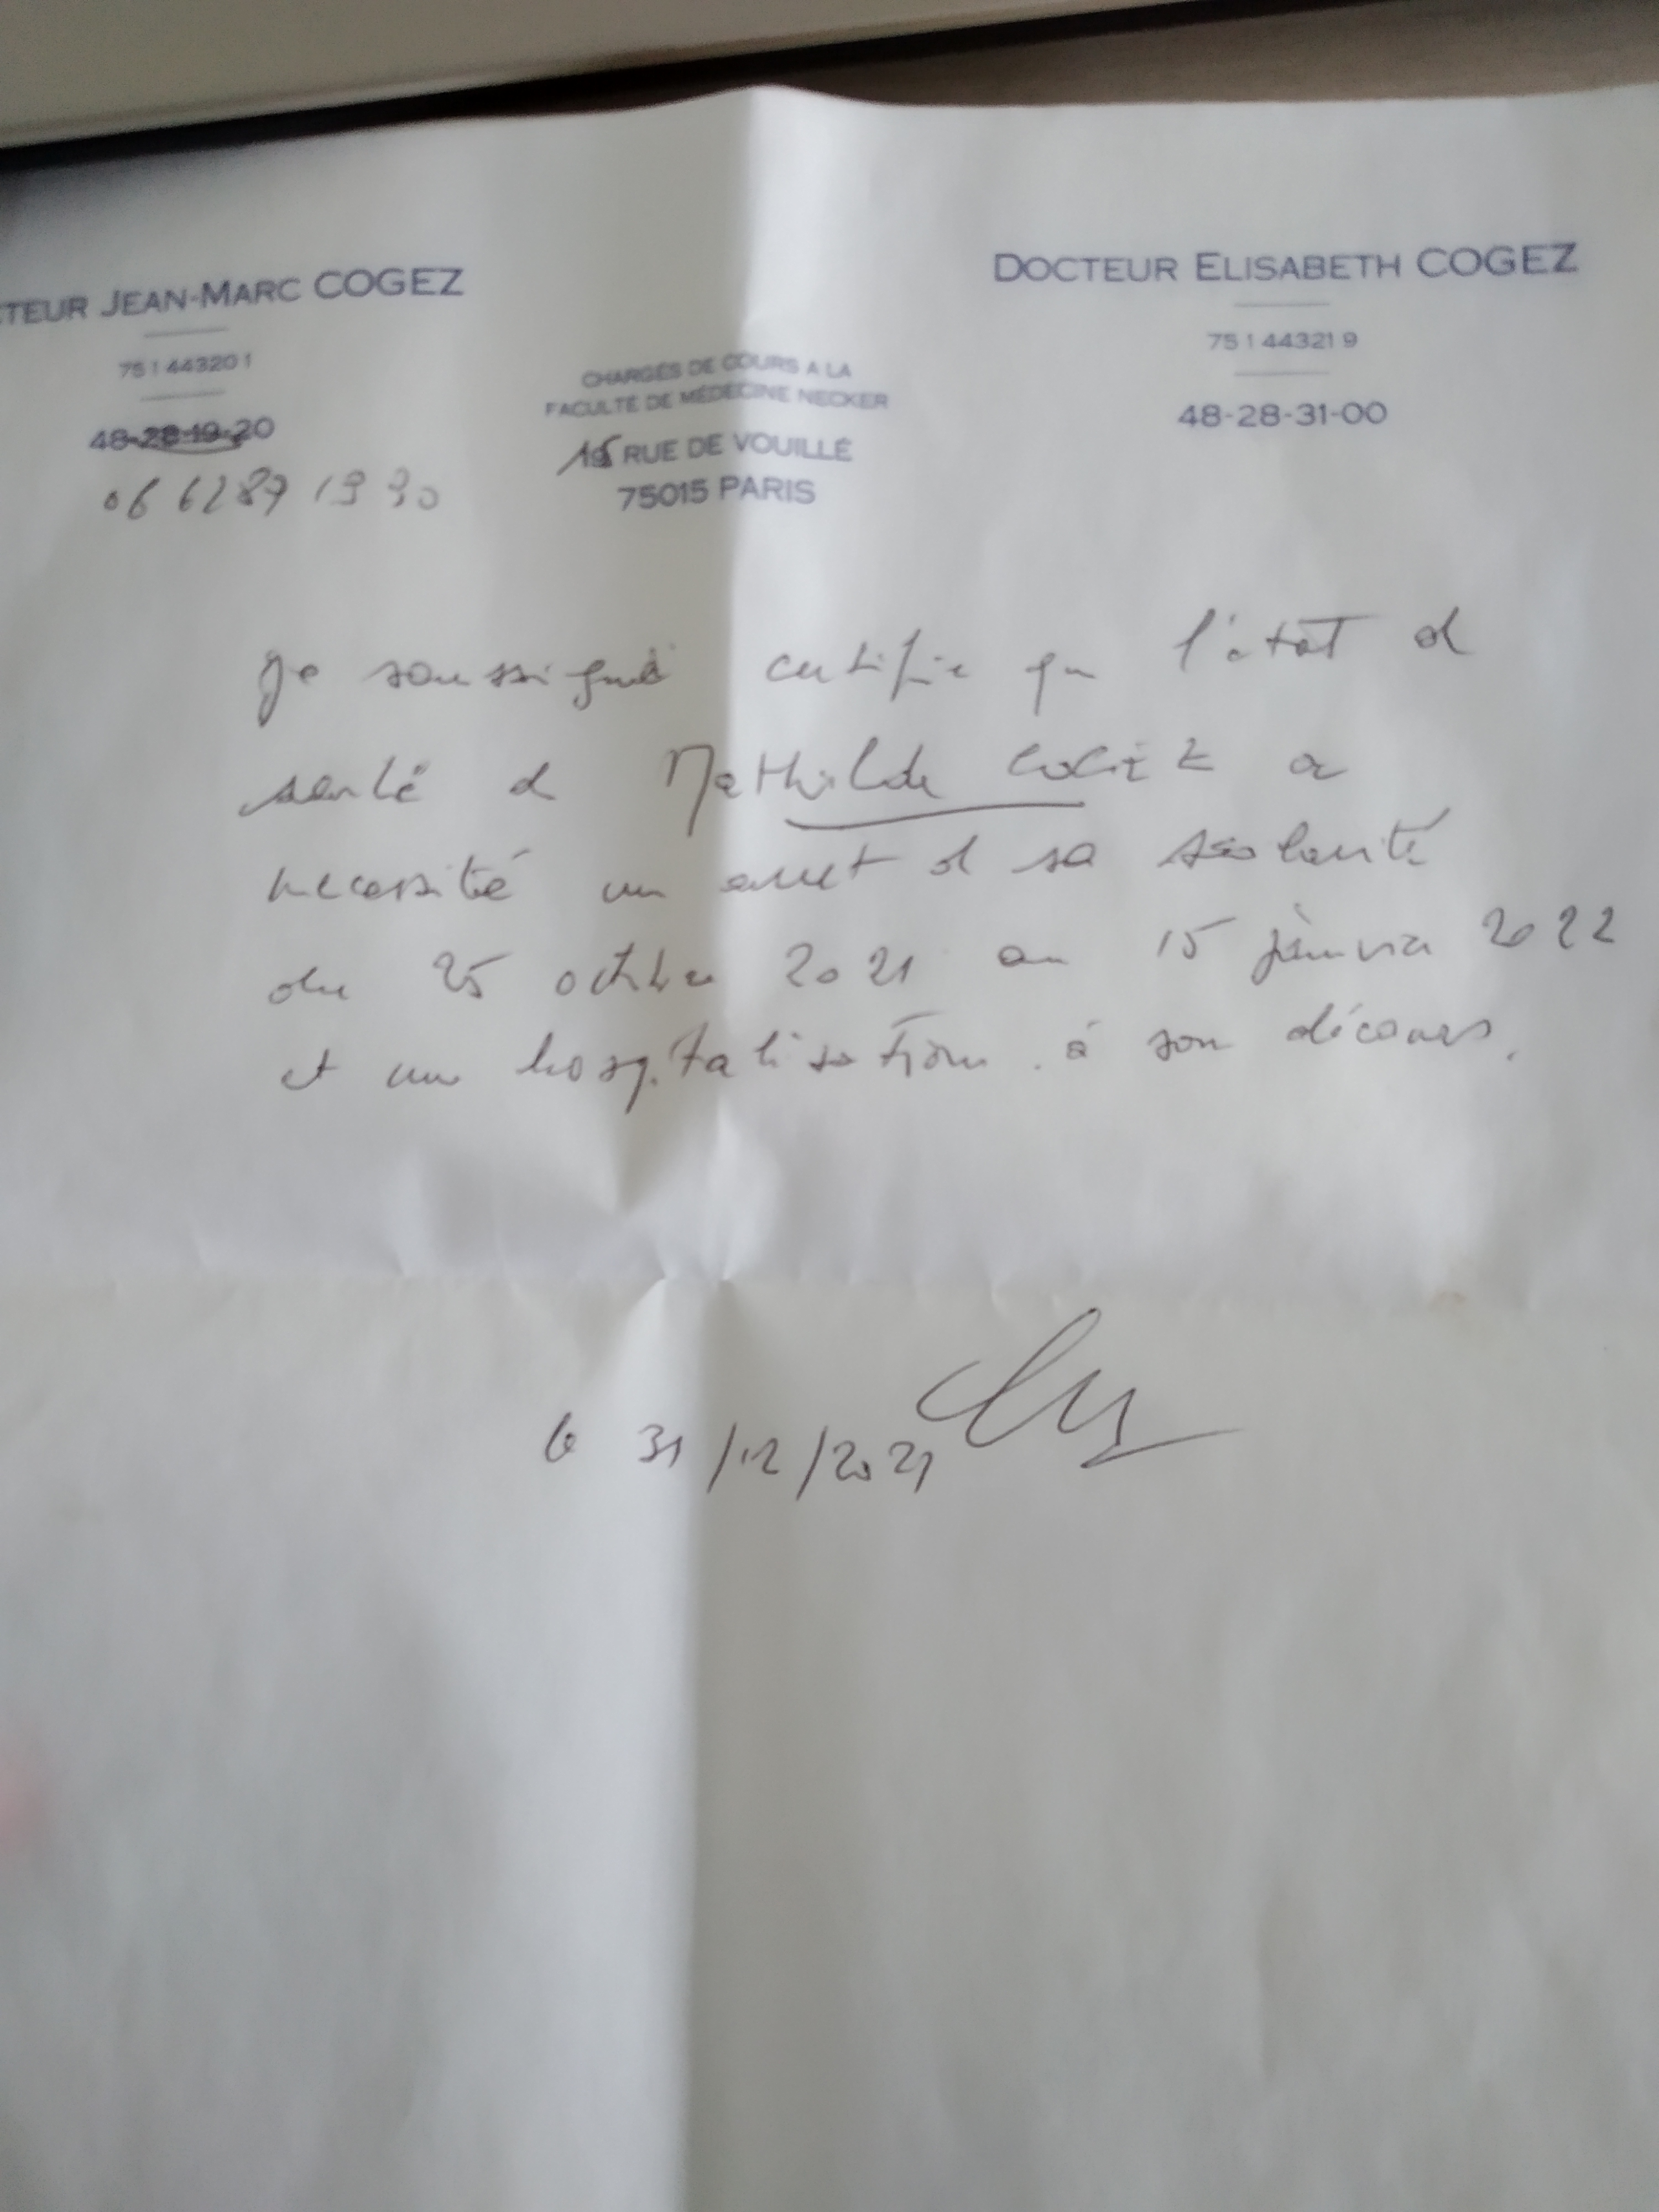 CTEUR JEAN-MARC COGEZ
751443201
48-28-19-20
06 62 87 19 30
CHARGÉS DE COURS A LA
FACULTÉ DE MÉDECINE NECKER
RUE DE VOUILLÉ
75015 PARIS
DOCTEUR ELISABETH COGEZ
751443219
48-28-31-00
Je soussigné certifie que l'état d
santé d Mathilde COGEZ a
necessité un arret d sa scolarité
du 25 octobre 2021 au 15 janvier 2022
et une hospitalisation à son décours.
le 31/12/2021